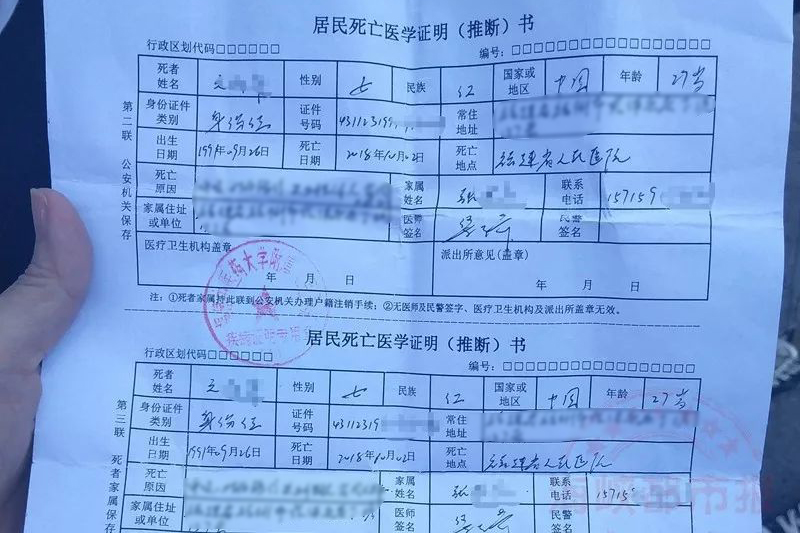 居民死亡医学证明（推断）书
行政区划代码□□□□□□ 编号：□□□□□□□□□□□□□□□□□
死者姓名 性别 女 民族 汉 国家或地区 中国 年龄 27岁
身份证件类别 身份证 证件号码 43112319 常住地址
出生日期 1991年09月26日 死亡日期 2018年10月02日 死亡地点 福建省人民医院
死亡原因 家属姓名 张 联系电话 157159
家属住址或单位 医师签名 民警签名
医疗卫生机构盖章 派出所意见(盖章)
年 月 日 年 月 日
注：①死者家属持此联到公安机关办理户籍注销手续；②无医师及民警签字、医疗卫生机构及派出所盖章无效。
第二联 公安机关保存
居民死亡医学证明（推断）书
行政区划代码□□□□□□ 编号：□□□□□□□□□□□□□□□□□
死者姓名 性别 女 民族 汉 国家或地区 中国 年龄 27岁
身份证件类别 身份证 证件号码 43112319 常住地址
出生日期 1991年09月26日 死亡日期 2018年10月02日 死亡地点 福建省人民医院
死亡原因 家属姓名 张 联系电话 15715
家属住址或单位 医师签名 民警签名
第三联 死者家属保存
海峡都市报